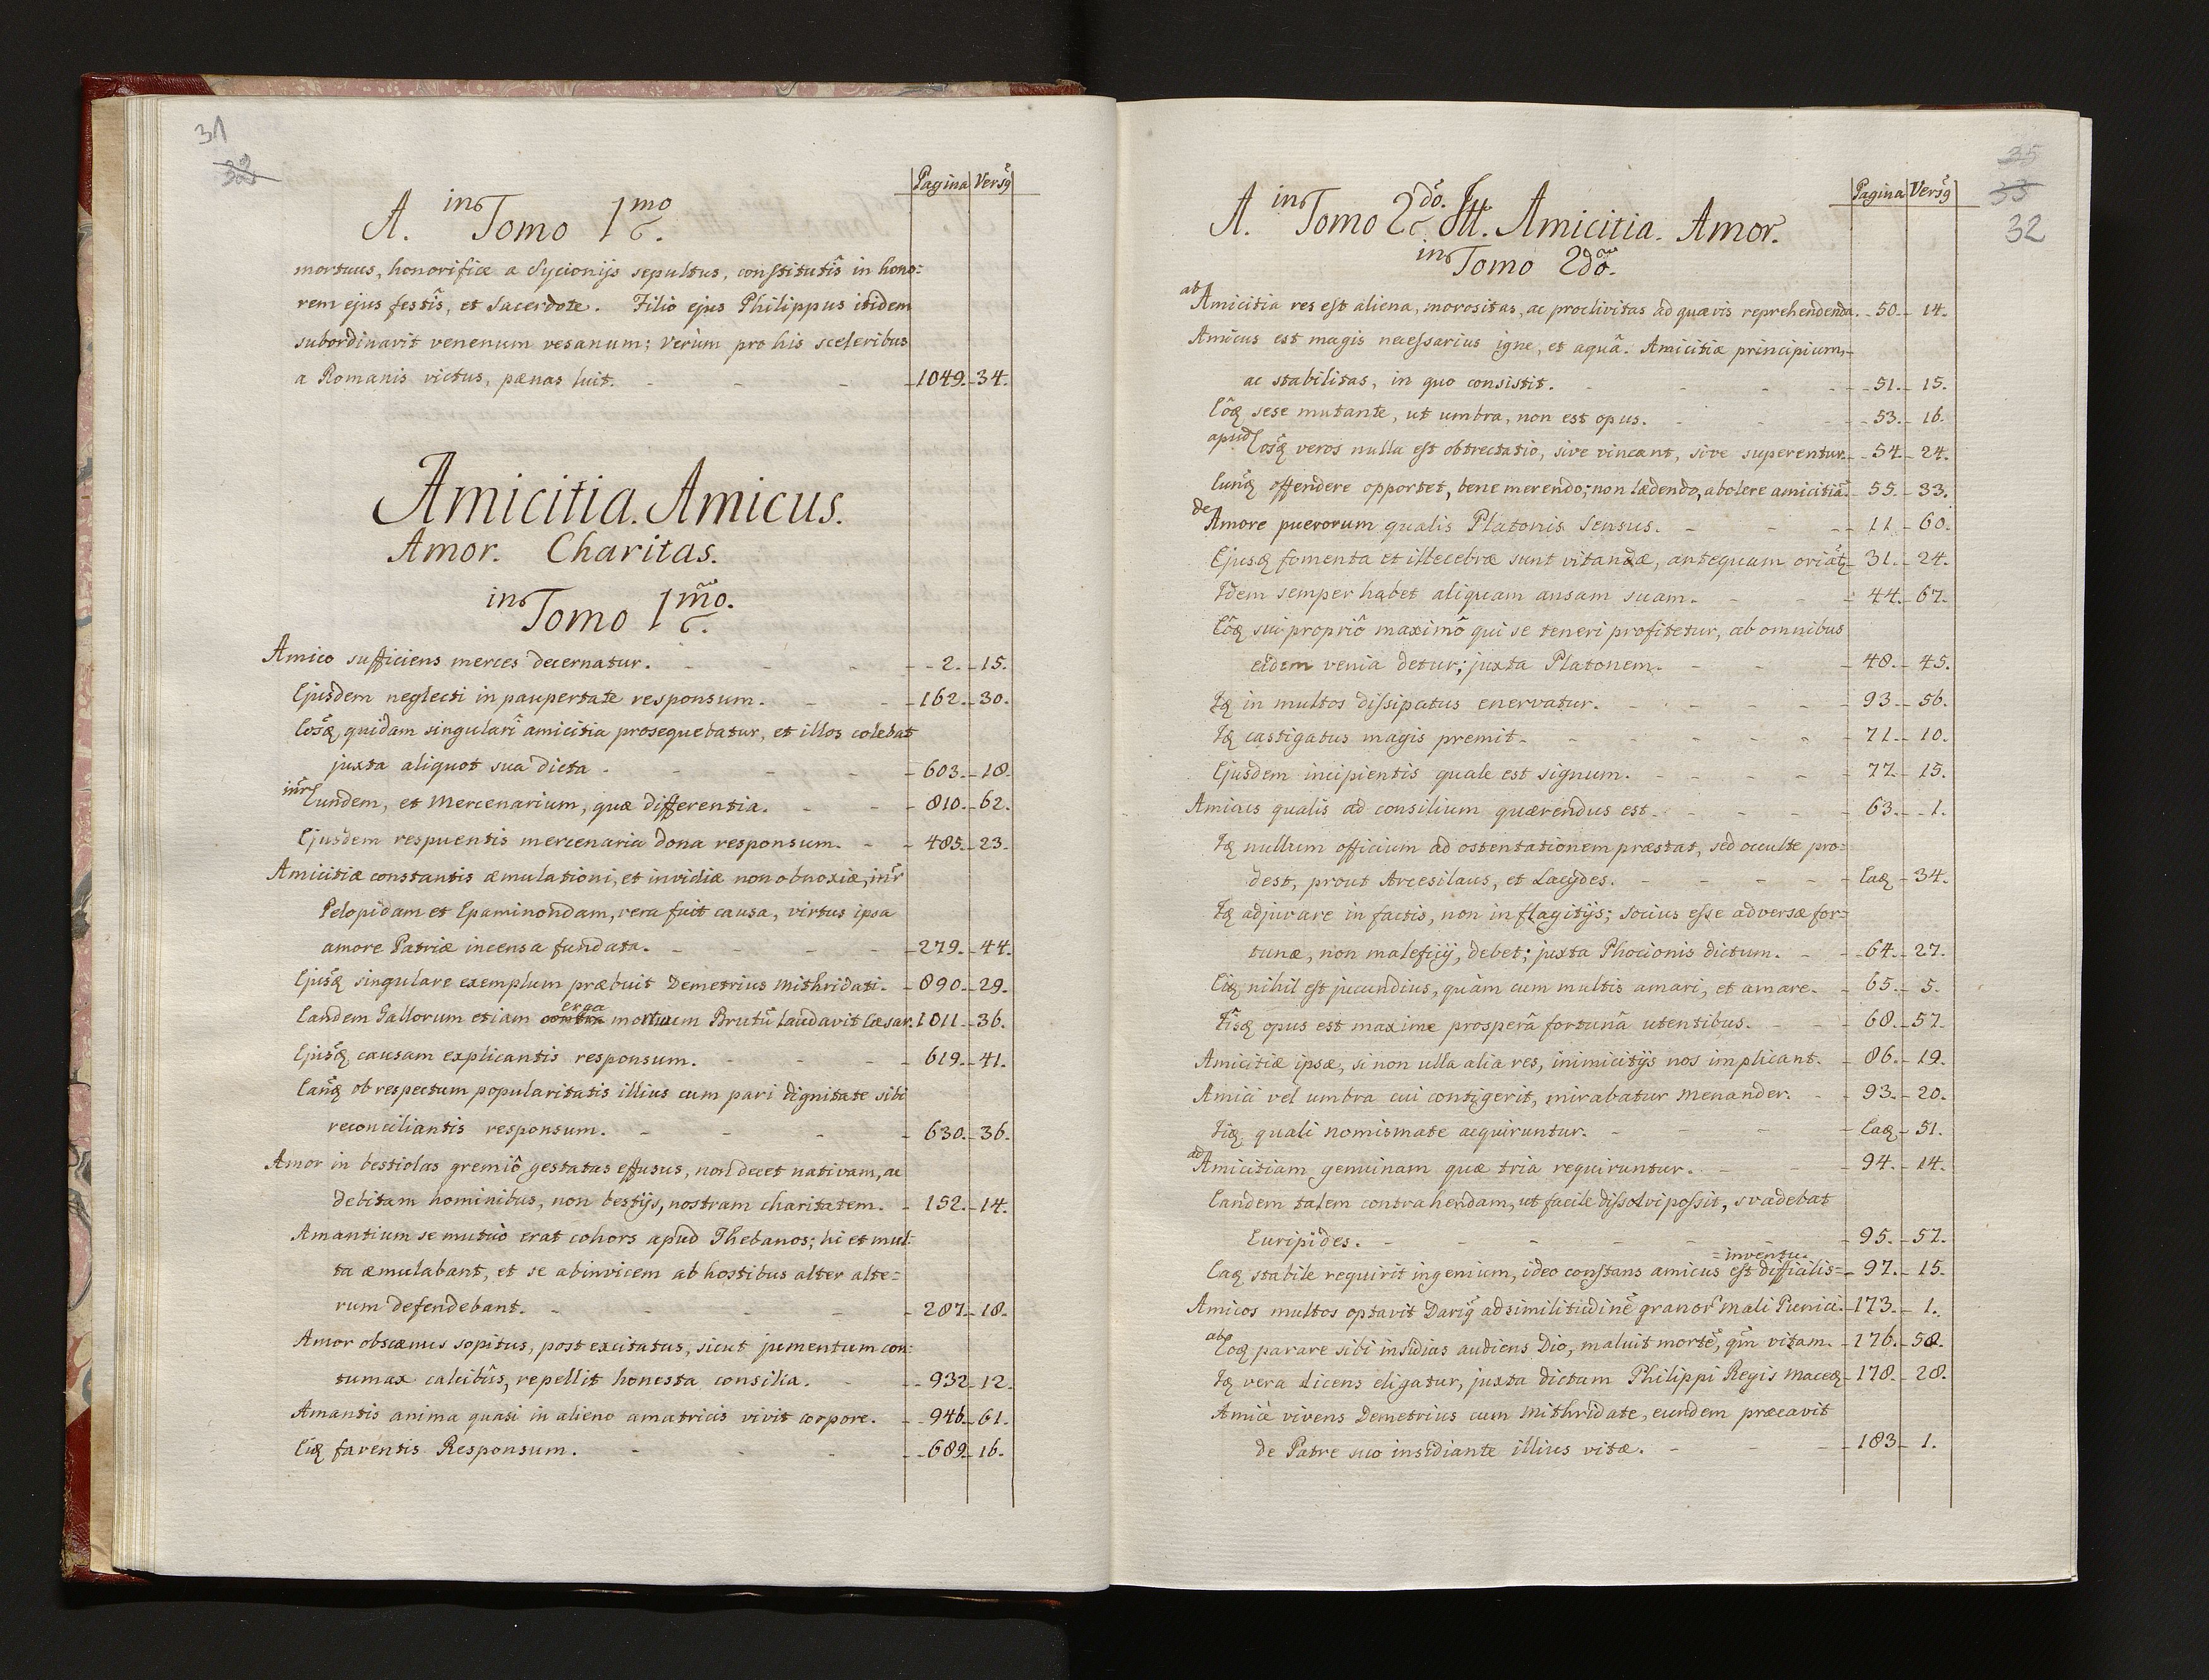 31
32
Pagina Versq̃
A. in Tomo 1mo.
mortuus, honorificæ a Sycionijs sepultus, constitutis̃ in hono:
rem ejus festis̃, et Sacerdote. Filio ejus Philippus itidem
subordinavit venenum vesanum; verùm pro his sceleribus
a Romanis victus, pænas luit. - - - 1049. 34.
Amicitia. Amicus.
Amor. Charitas.
in Tomo 1mo.
Amico sufficiens merces decernatur. - - - 2. 15.
Ejusdem neglecti in paupertate responsum. - - 162. 30.
quidam singulari amicitia prosequebatur, et illos colebat
juxta aliquot sua dicta - - - 603. 18.
inr̃ Eundem, et Mercenarium, quæ differentia. - - 810. 62.
Ejusdem respuentis mercenaria dona responsum. - - 485. 23.
Amicitiæ constantis æmulationi, et invidiæ non obnoxiæ, inr̃
Pelopidam et Epaminondam, vera fuit causa, virtus ipsa
amore Patriæ incensa fundata. - - - 279. 44.
Ejusq̃ singulare exemplum præbuit Demetrius Mithridati. 890. 29.
Eandem Gallorum etiam contra erga mortuum Brutũ laudavit Cæsar. 1011. 36.
Ejusq̃ causam explicantis responsum. - - - 619. 41.
Eanq̃ ob respectum popularitatis illius cum pari dignitate sibi
reconciliantis responsum. - - - 630. 36.
Amor in bestiolas gremiô gestatas effusus, non decet nativam, ac
debitam hominibus, non bestijs, nostram charitatem. - 152. 14.
Amantium se mutuò erat cohors apud Thebanos; hi et mul:
ta æmulabant, et se abinvicem ab hostibus alter alte=
rum defendebant. - - - - 287. 18.
Amor obscænus sopitus, post excitatus, sicut jumentum con:
tumax calcibûs, repellit honesta consilia. - - 932. 12.
Amantis anima quasi in alieno amatricis vivit corpore. - 946. 61.
Eiq faventis Responsum. - - - 689. 16.
35
33
32
Pagina Versq̃
A. in Tomo 2do. Itt. Amicitia. Amor.
in Tomo 2dô.
ab Amicitia res est aliena, morositas, ac proclivitas ad quævis reprehendenda. 50. 14.
Amicus est magis necessarius igne, et aquâ. Amicitiæ principium,
ac stabilitas, in quo consistit. - - - 51. 15.
Eôq sese mutante, ut umbra, non est opus. - - 53. 16.
apud Eosq̃ veros nulla est obtrectatio, sive vincant, sive superentur. 54. 24.
Eunq̃ offendere opportet, bene merendo; non lædendo, abolere amicitiã. 55. 33.
de Amore puerorum qualis Platonis sensus. - - - 11. 60.
Ejusq fomenta et illecebræ sunt vitandæ, antequam oriãtq 31. 24.
Idem semper habet aliquam ansam suam. - - 44. 67.
Eôq sui propriô maximô qui se teneri profitetur, ab omnibus
eidem venia detur; juxta Platonem. - - 48. 45.
Iq in multos dissipatus enervatur. - - - 93. 56.
Iq castigatus magis premit. - - - 71. 10.
Ejusdem incipientis quale est signum. - - - 77. 15.
Amicus qualis ad consilium quærendus est. - - - 63. 1.
Iq nullum officium ad ostentationem præstat, sed occulte pro=
dest, prout Arcesilaus, et Lacydes. - - - Eaq 34.
Iq adjuvare in factis, non in flagitijs; socius esse adversæ for=
tunæ, non maleficij, debet; juxta Phocionis dictum. - - 64. 27.
Eiq nihil est jucundius, quàm cum multis amari, et amare. - 65. 5.
Iîsq opus est maxime prosperâ fortunâ utentibus. - - 68. 57.
Amicitiæ ipsæ, si non ulla alia res, inimicitijs nos implicant. - 86. 19.
Amici vel umbra cui contigerit, mirabatur Menander. - - 93. 20.
Iiq, quali nomismate acquiruntur. - - - Eaq 51.
ad Amicitiam genuinam quæ tria requiruntur. - - 94. 14.
Eandem talem contrahendam, ut facile dissolvi possit, svadebat
Euripides. - - - - - 95. 57.
=inventu.
Eaq stabile requirit ingenium, ideo constans amicus est difficilis= 97. 15.
Amicos multos optavit Dariq̃ ad similitudinẽ granor̃ mali Punici. 173. 1.
ab Eôq parare sibi insidias audiens Dio, maluit mortẽ, qm̃ vitam. 176. 58.
Iq vera dicens eligatur, juxta dictam Philippi Regis Maceq 178. 28.
Amicè vivens Demetrius cum Mithridate, eundem præcavit
de Patre suo insidiante illius vitæ. - - - 183. 1.